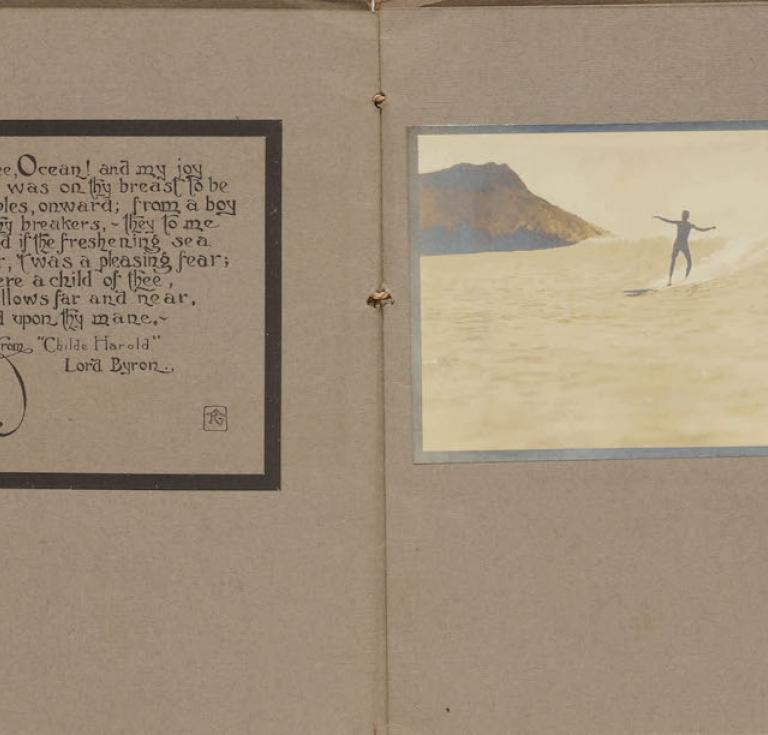 ee, Ocean! and my joy
was on thy breast to be
bles, onward; from a boy
hy breakers, - they to me
d if the freshening sea
r, 'twas a pleasing fear;
ere a child of thee,
llows far and near,
d upon thy mane.~
from "Childe Harold"
Lord Byron.